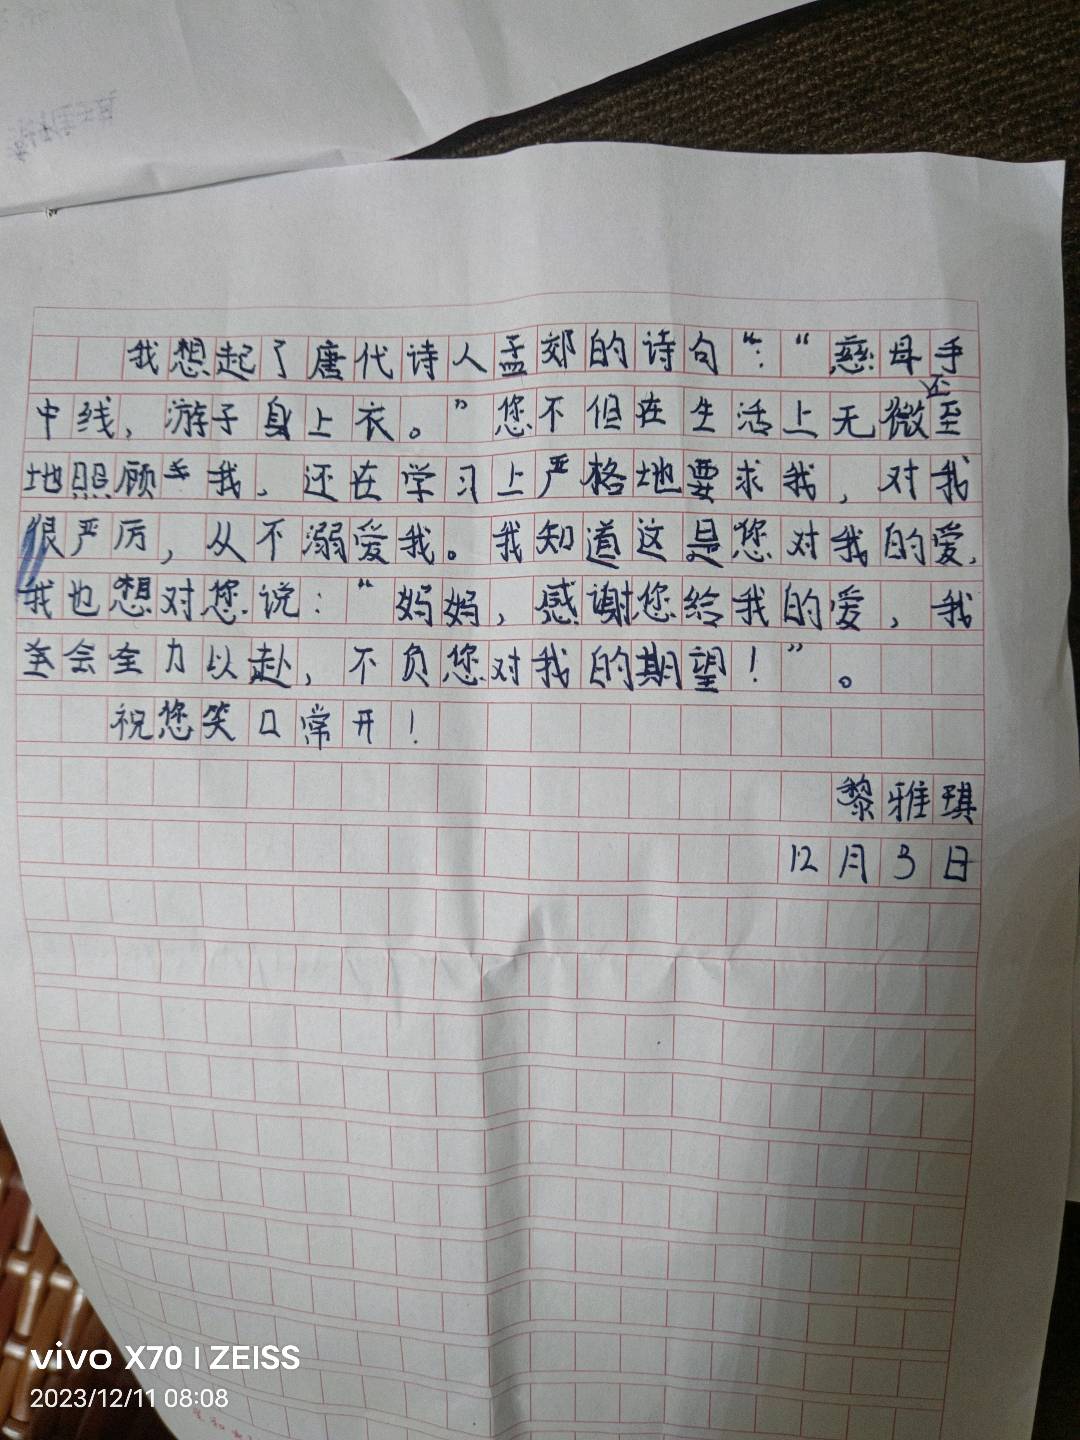 我想起了唐代诗人孟郊的诗句“:“慈母手
中线，游子身上衣。”您不但在生活上无微不至
地照顾我，还在学习上严格地要求我，对我
很严厉，从不溺爱我。我知道这是您对我的爱，
我也想对您说：“妈妈，感谢您给我的爱，我
会全力以赴，不负您对我的期望！”。
祝您笑口常开！
黎雅琪
12月3日
vivo X70 | ZEISS
2023/12/11 08:08